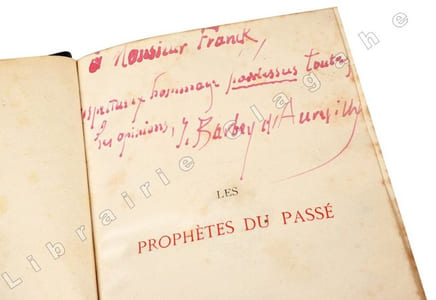 à Monsieur Franck
respectueux hommage pardessus toutes
les opinions, J. Barbey d'Aurevilly
LES
PROPHÈTES DU PASSÉ
Librairie elagahe